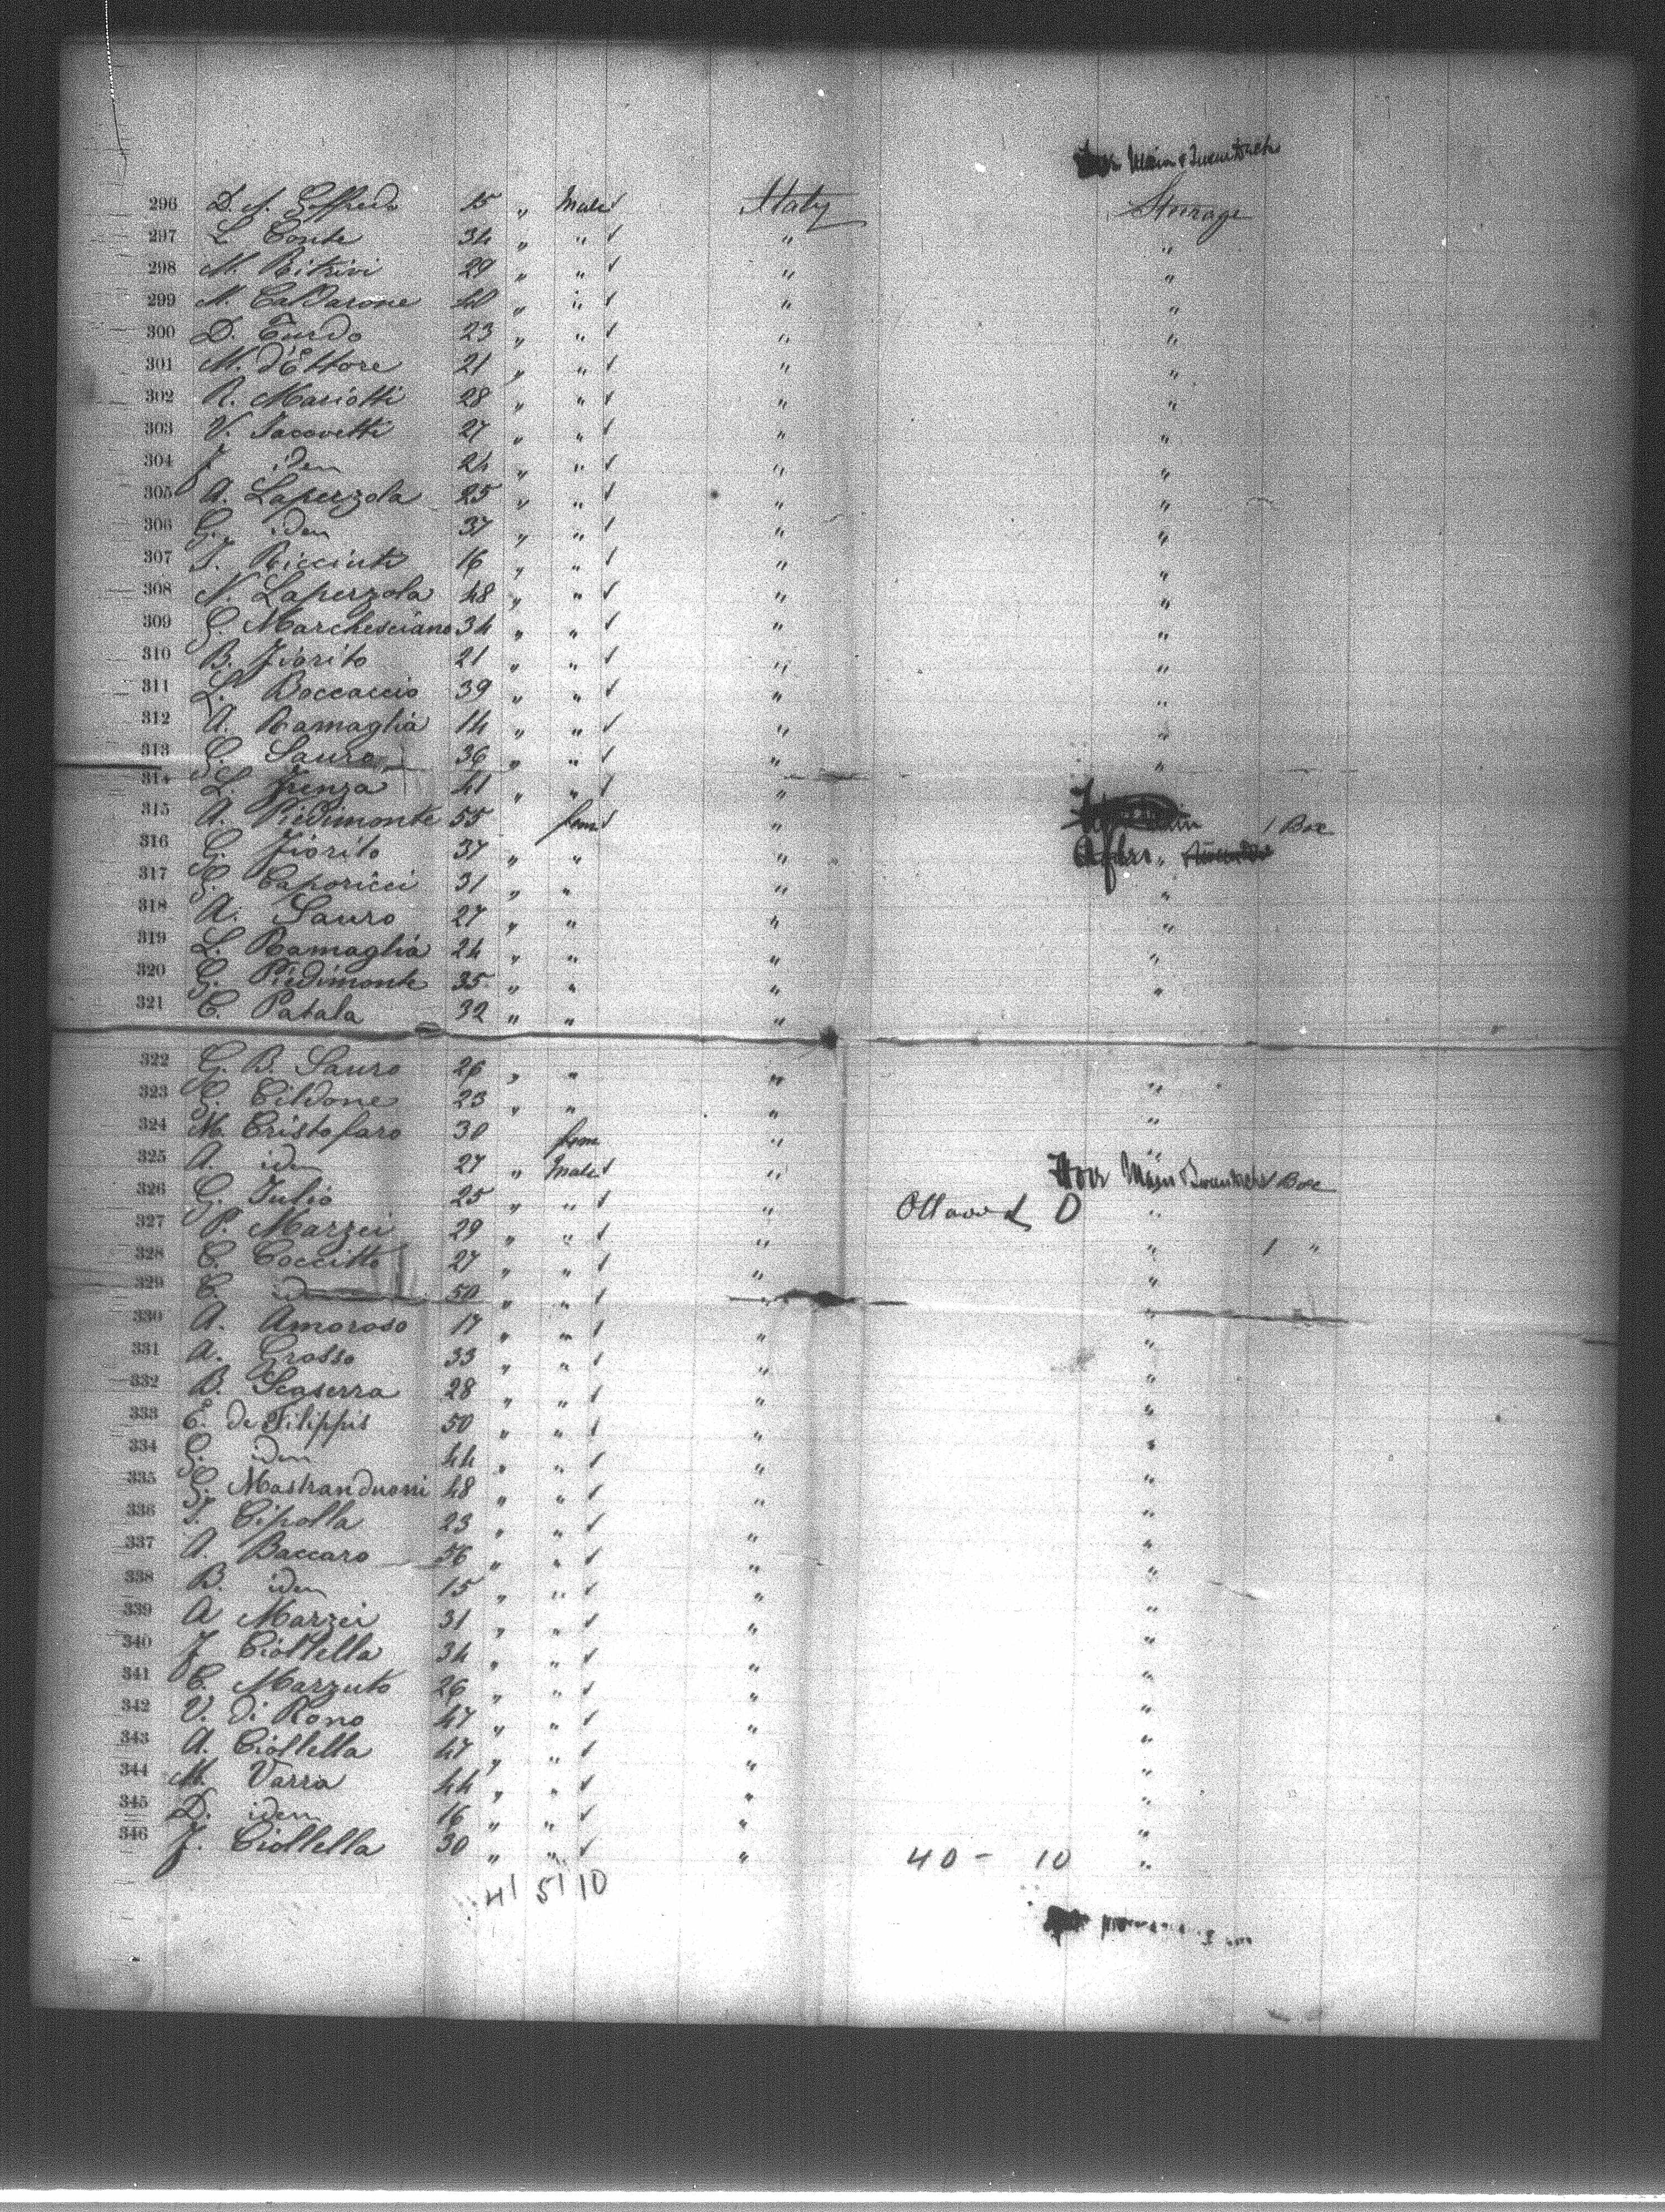 Main &
296 D. A. Goffredo 15 " Male ✓ Italy Steerage
297 L. Conte 34 " " ✓ " "
298 M. Bitrivi 29 " " ✓ " "
299 N. Caldarone 40 " " ✓ " "
300 D. Turdo 23 " " ✓ " "
301 M. d'Ettore 21 " " ✓ " "
302 R. Mariotti 28 " " ✓ " "
303 V. Iacovetti 27 " " ✓ " "
304 F. idem 24 " " ✓ " "
305 A. Laperzola 25 " " ✓ " "
306 G. idem 37 " " ✓ " "
307 S. Ricciuti 16 " " ✓ " "
308 N. Laperzola 48 " " ✓ " "
309 G. Marchesciano 34 " " ✓ " "
310 B. Fiorito 21 " " ✓ " "
311 L. Boccaccio 39 " " ✓ " "
312 A. Ramaglia 14 " " ✓ " "
313 C. Sauro 36 " " ✓ " "
314 L. Frenza 41 " " ✓ "
315 A. Piedimonte 55 fem ✓ " 1 Box
316 G. Fiorito 37 " " "
317 G. Caporicci 31 " " " "
318 A. Sauro 27 " " " "
319 L. Ramaglia 24 " " " "
320 G. Piedimonte 35 " " " "
321 C. Patala 32 " " "
322 G. B. Sauro 26 " " " "
323 G. Cildone 23 " " " "
324 M. Cristofaro 30 fem " "
325 A. idem 27 " Male ✓ " Main 1 Box
326 G. Iulio 25 " " ✓ " D "
327 P. Marzei 29 " " ✓ " " 1 "
328 C. Coccitto 27 " " ✓ " "
329 C. id 50 " " ✓ " "
330 A. Amoroso 17 " " ✓ " "
331 A. Grosso 33 " " ✓ " "
332 B. Scaserra 28 " " ✓ " "
333 E. de Filippis 50 " " ✓ " "
334 G. idem 44 " " ✓ " "
335 G. Mastranduoni 48 " " ✓ " "
336 S. Cipolla 23 " " ✓ " "
337 A. Baccaro 36 " " ✓ " "
338 B. idem 15 " " ✓ " "
339 A. Marzei 31 " " ✓ " "
340 F. Ciollella 34 " " ✓ " "
341 C. Marzuto 26 " " ✓ " "
342 V. di Rono 47 " " ✓ " "
343 A. Ciollella 47 " " ✓ " "
344 M. Varra 44 " " ✓ " "
345 D. idem 16 " " ✓ " "
346 F. Ciollella 30 " " ✓ " 40 - 10 "
41 51 10